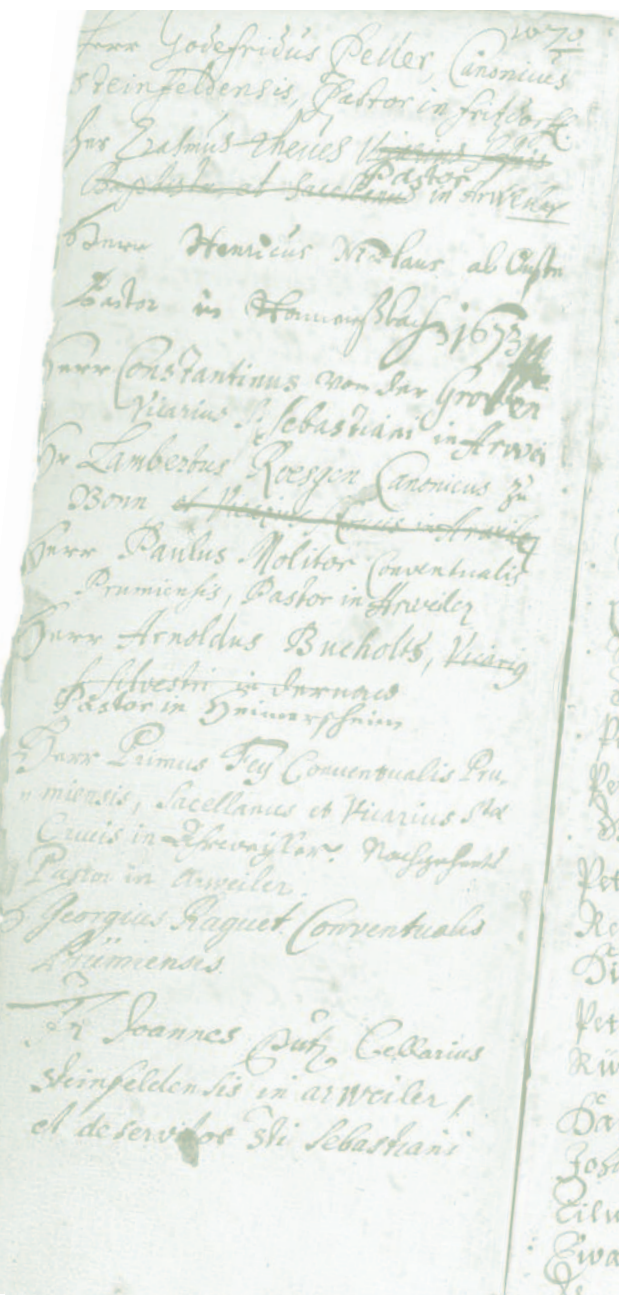 1670.
Herr Godefridus Peller, Canonicus
Steinfeldensis, Pastor in Fritzdorff.
Her Erasmus Theves Vicarius
Baptistæ et Sacellanus Pastor in Arweiler
Herr Henricus Nicolaus ab
Pastor in 1673
Herr Constantinus von der Groben
Vicarius S. Sebastiani in Arwei
Hr Lambertus Roesgen Canonicus zu
Bonn et Vicarius Crucis in Arweiler
Herr Paulus Molitor Conventualis
Prumiensis, Pastor in Arweiler
Herr Arnoldus Bucholts, Vicarius
S. Silvestri in Dernaw
Pastor in Heimersheim
Herr Primus Fey Conventualis Pru-
miensis, Sacellanus et Vicarius Stæ
Crucis in Ahrweyller. Nachgehents
Pastor in Arweiler.
H. Georgius Raguet Conventualis
Prümiensis.
Joannes Pütz Cellarius
Steinfeldensis in arweiler,
et deservitor Sti Sebastiani
Pet
Pet
Joha